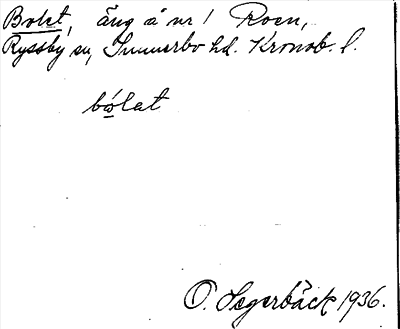 Bolet, äng å nr 1 Roen,
Ryssby sn, Sunnerbo hd. Kronob. l.
bo̤lat
O. Segerbäck 1936.